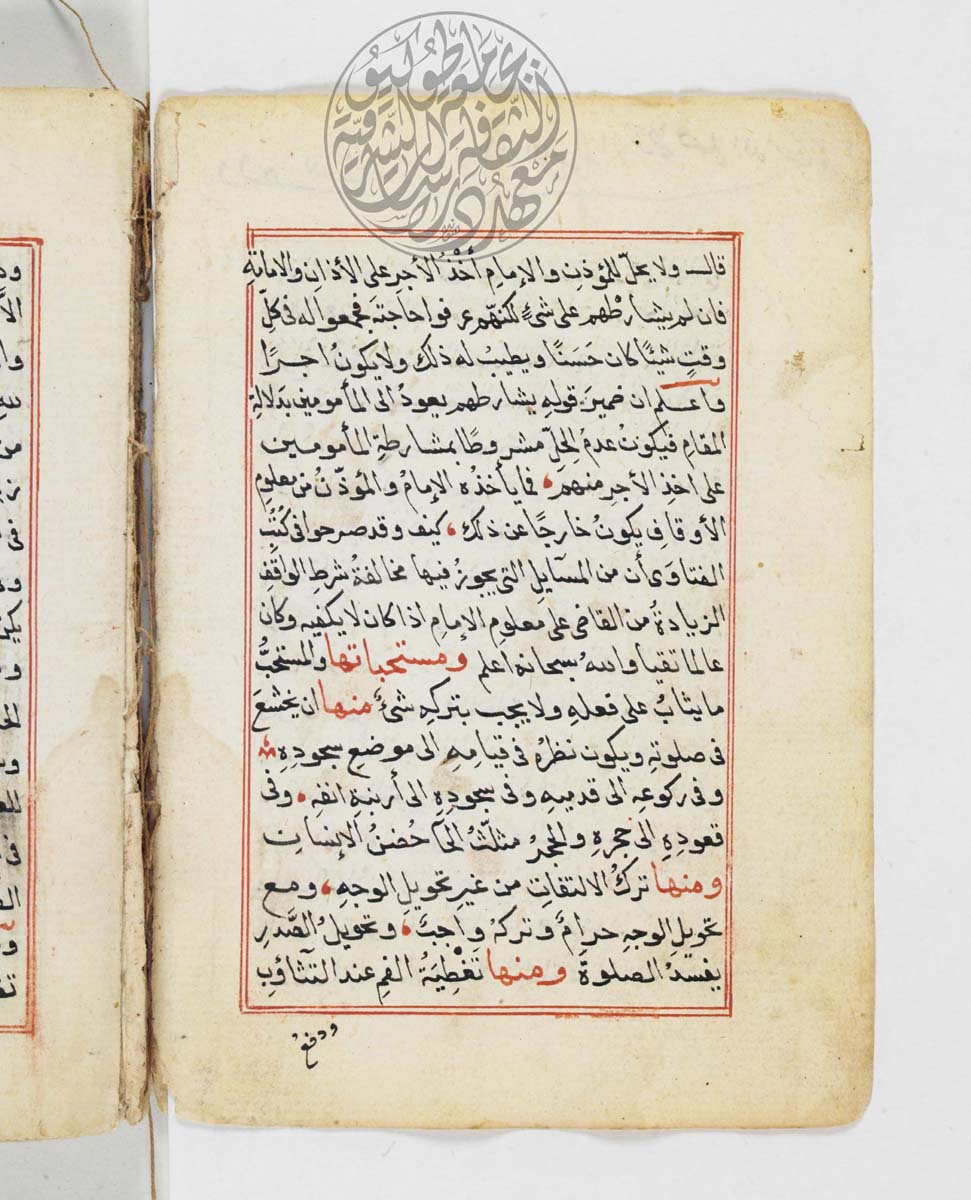 قال ولا يحلّ للمؤذن والإمامِ أَخْذُ الأجرِ على الأذان والامامةِ
فان لم يشارطْهم على شئٍ لكنّهم عرفوا حاجتَه فجمعوا له فى كلِّ
وقتٍ شيئًا كان حَسَنًا ويطيبُ له ذلك ولا يكونُ اجرًا
واعلم ان ضميرَ قولهِ يشارطهم يعودُ الى المأمومين بدَلالةِ
المقامِ فيكونُ عدمُ الحِلِّ مشروطًا بمشارطةِ المأمومين
على اخذِ الأجرِ منهم، فما يأخذُه الإمامُ والمؤذّنُ من معلومِ
الأوقافِ يكونُ خارجًا عن ذلك، كيف وقد صرحوا فى كُتُبِ
الفتاوَى أن من المسآيلِ التى يجوزُ فيها مخالفةُ شرطِ الواقِفِ
الزيادةُ من القاضى على معلومِ الإمامِ اذا كان لا يكفيه وكان
عالما تقيا واللهُ سبحانه اعلم ومستحباتها والمستحبُّ
ما يثابُ على فعلهِ ولا يجب بتركهِ شئٌ منها ان يخشعَ
فى صلوتهِ ويكون نظرُه فى قيامهِ الى موضعِ سجودِهِ
وفى ركوعهِ الى قدميه وفى سجودِهِ الى أرنبةِ انفهِ، وفى
قعودِهِ الى حجرهِ والحجرُ مثلّثُ الحآ حُضنُ الإنسانِ
ومنها تركُ الالتفاتِ من غيرِ تحويلِ الوجهِ، ومع
تحويلِ الوجهِ حرامٌ وتركهُ واجبٌ، وتحويلُ الصَّدرِ
يفسدُ الصلوةَ ومنها تَغْطِيَةُ الفمِ عند التثاؤبِ
ودفع